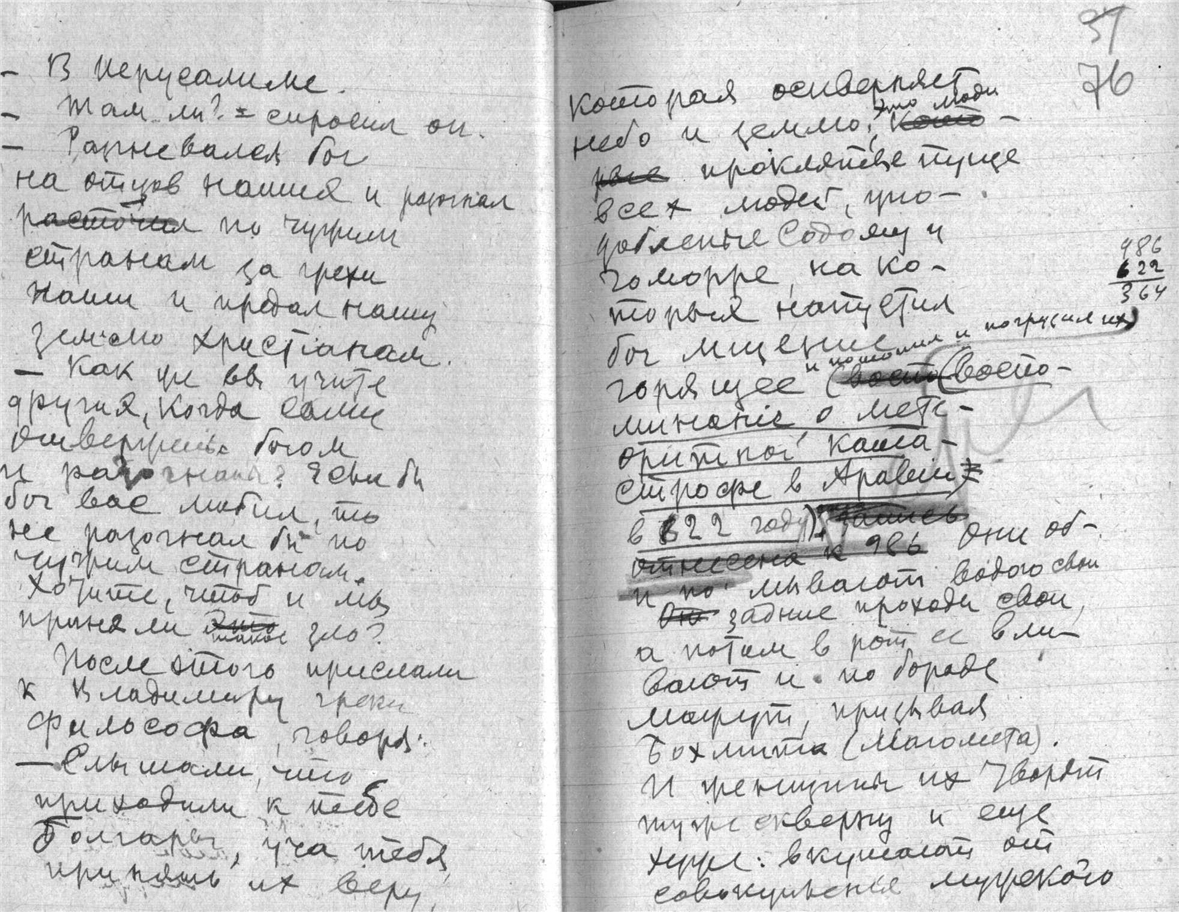 – В Iерусалиме.
– Там ли? – спросил он.
– Разгневался бог
на отцов наших и разогнал
расточил по чужим
странам за грехи
наши и предал нашу
землю христiанам.
– Как же вы учите
других, когда сами
отвержены богом
и разогнаны? Если бы
бог вас любил, то
не разогнал бы по
чужим странам.
Хотите, чтоб и мы
приняли это такое зло?
После этого прислали
к Владимиру греки
философа, говоря:
– Слышали, что
приходили к тебе
Болгары, уча тебя
принять их веру,
37
76
которая оскверняет
небо и землю, это люди
прокляты пуще
всех людей, упо-
добленые Содому и
Гоморре, на ко-
торыя напустил
бог мщение
и потопил и погрузил их
горящее (воспо-
минанiе о мете-
оритной ката-
строфе в Аравии
в 622 году)
986
622
364
отнесена к 986 Они об-
мывают водою свои
задние проходы свои,
а потом в рот ее вли-
вают и по бороде
мажут, призывая
Бохмита (Магомета).
И женщины их творят
туже скверну и еще
хуже: вкушают от
совокупленья мужского